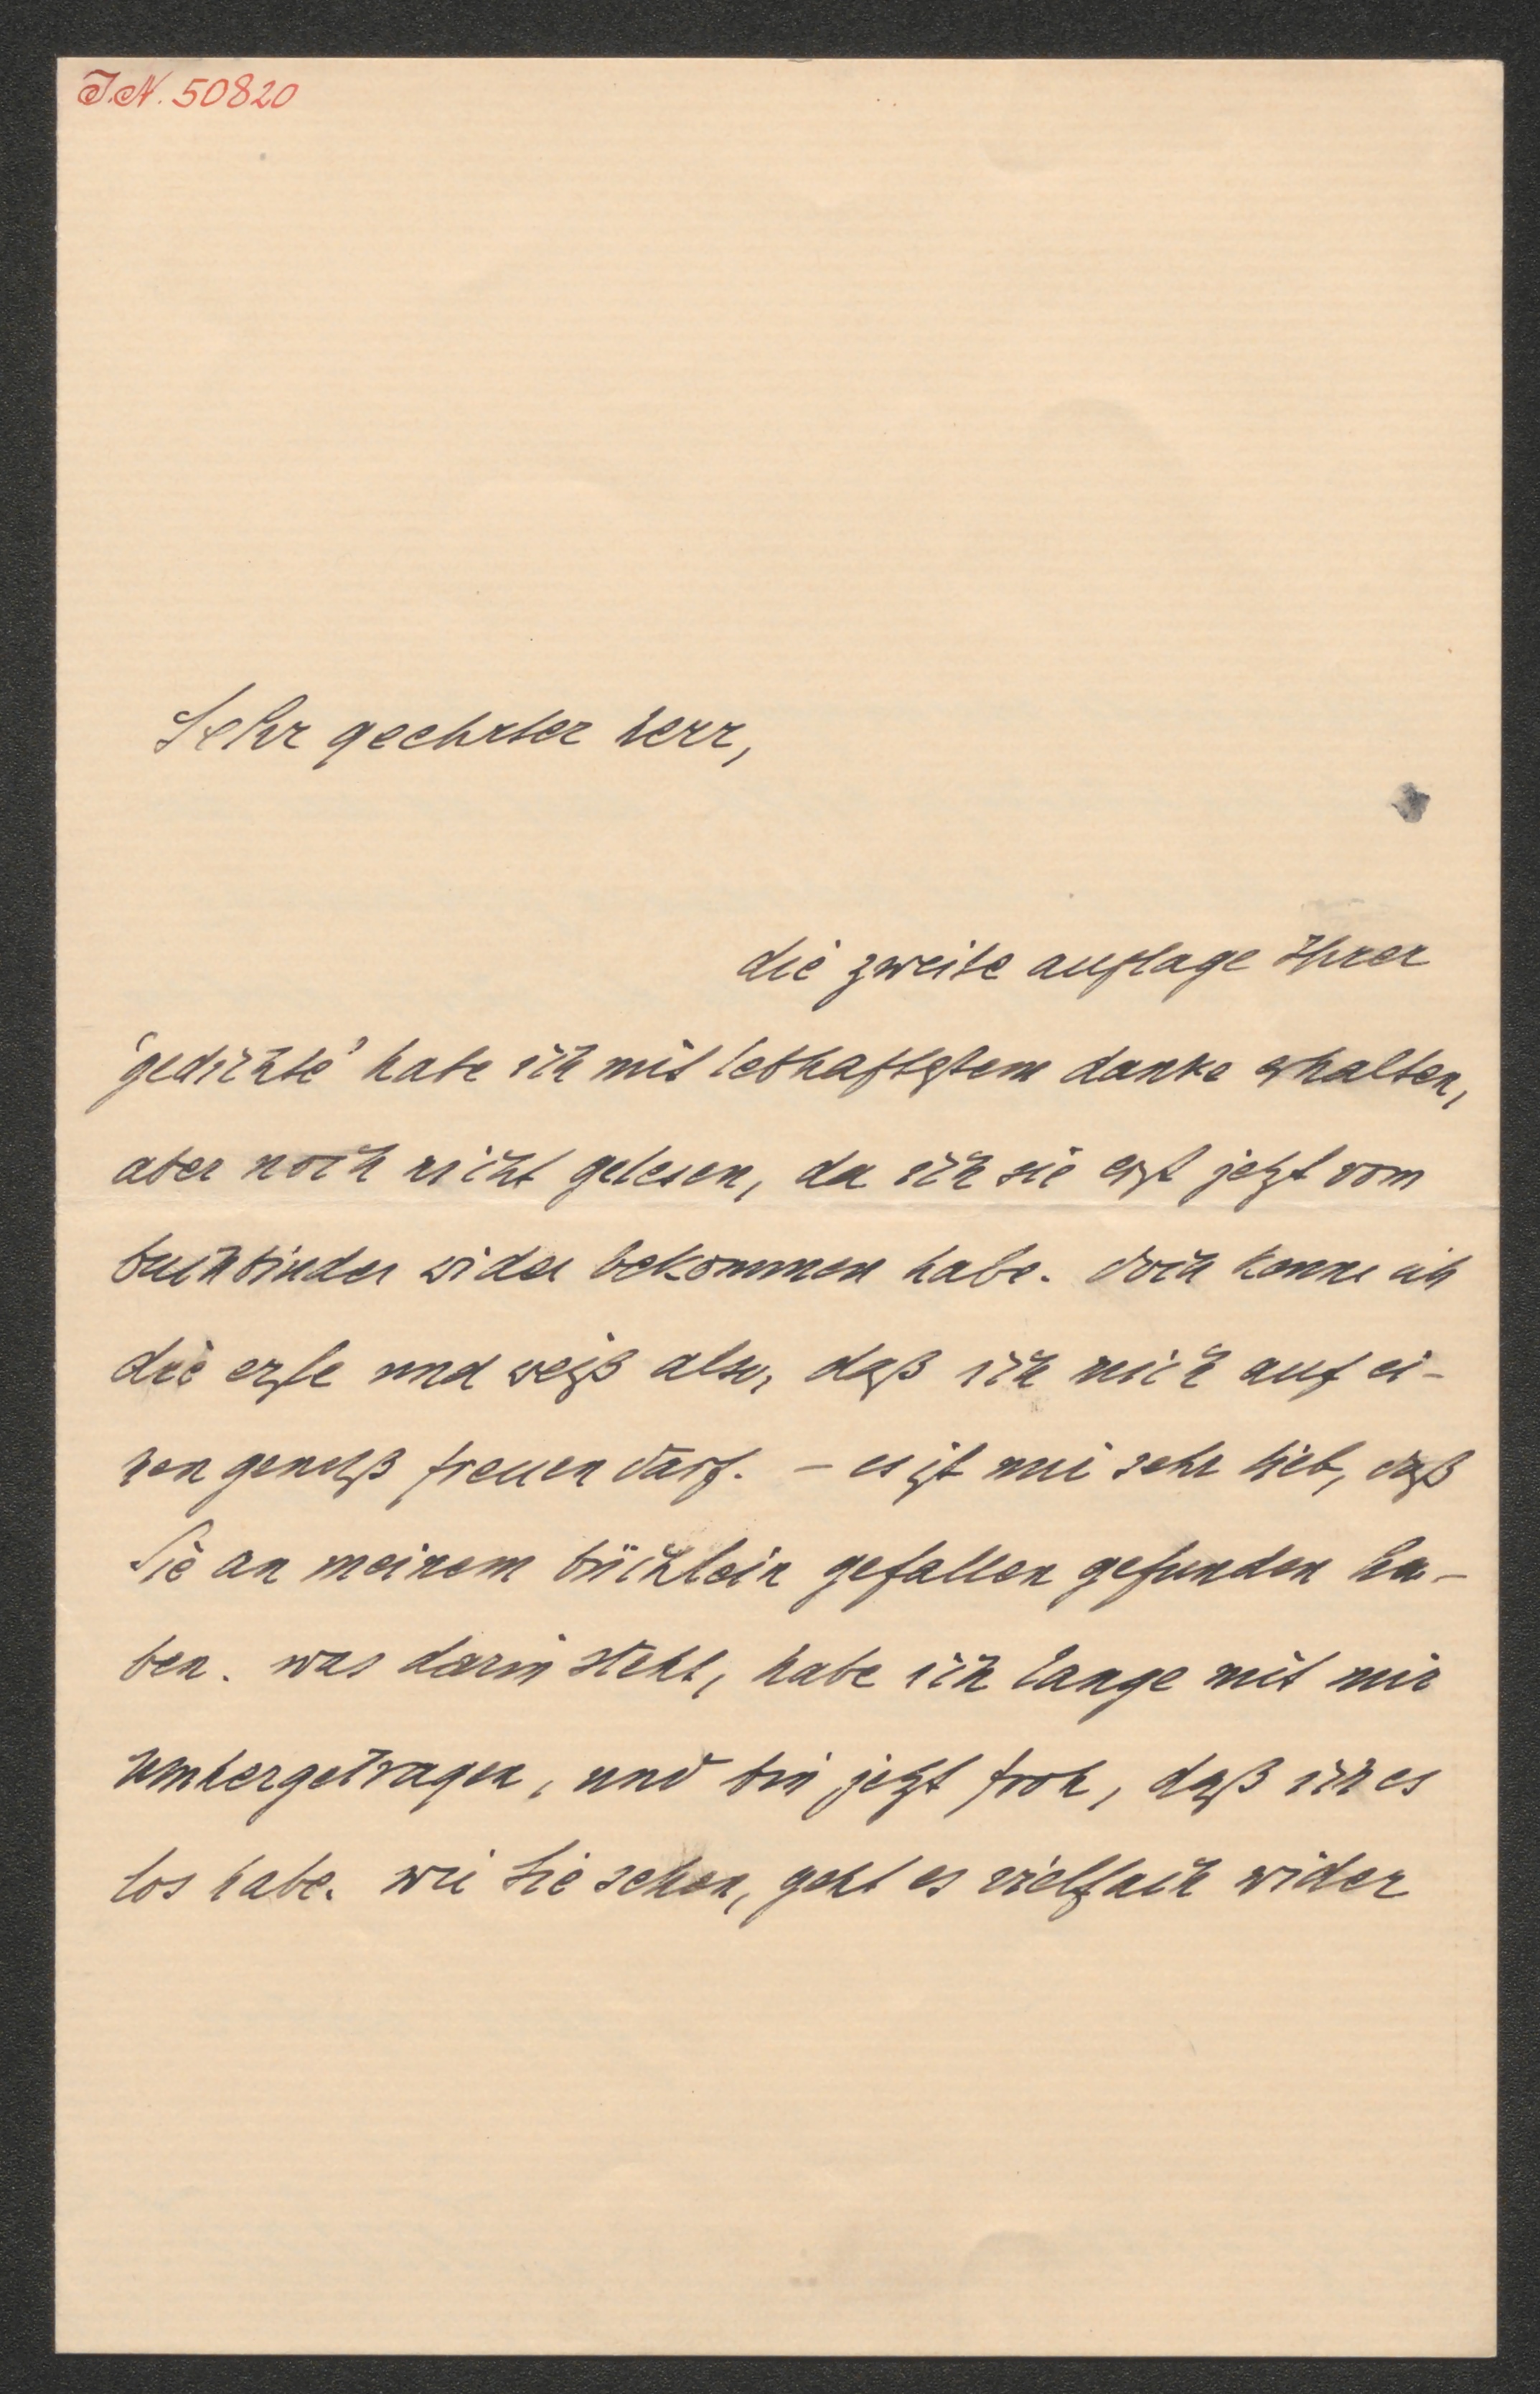 I.N. 50820
Sehr geehrter herr,
die zweite auflage Ihrer
'gedichte' habe ich mit lebhaftestem danke erhalten,
aber noch nicht gelesen, da ich sie erst jetzt vom
buchbinder wider bekommen habe. doch kenne ich
die erste und weiß also, daß ich mich auf ei-
nen genuß freuen darf. – es ist mir sehr lieb, daß
Sie an meinem büchlein gefallen gefunden ha-
ben. was darin steht, habe ich lange mit mir
umhergetragen, und bin jetzt froh, daß ich es
los habe. wie Sie sehen, geht es vielfach wider